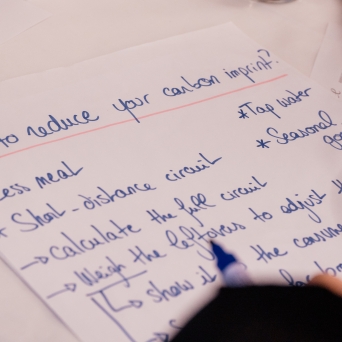 to reduce your carbon imprint?
*Tap water
*Seasonal
less meat
Short-distance circuit
→Calculate the full circuit
→Weigh the leftovers to adjust
↳show the consum